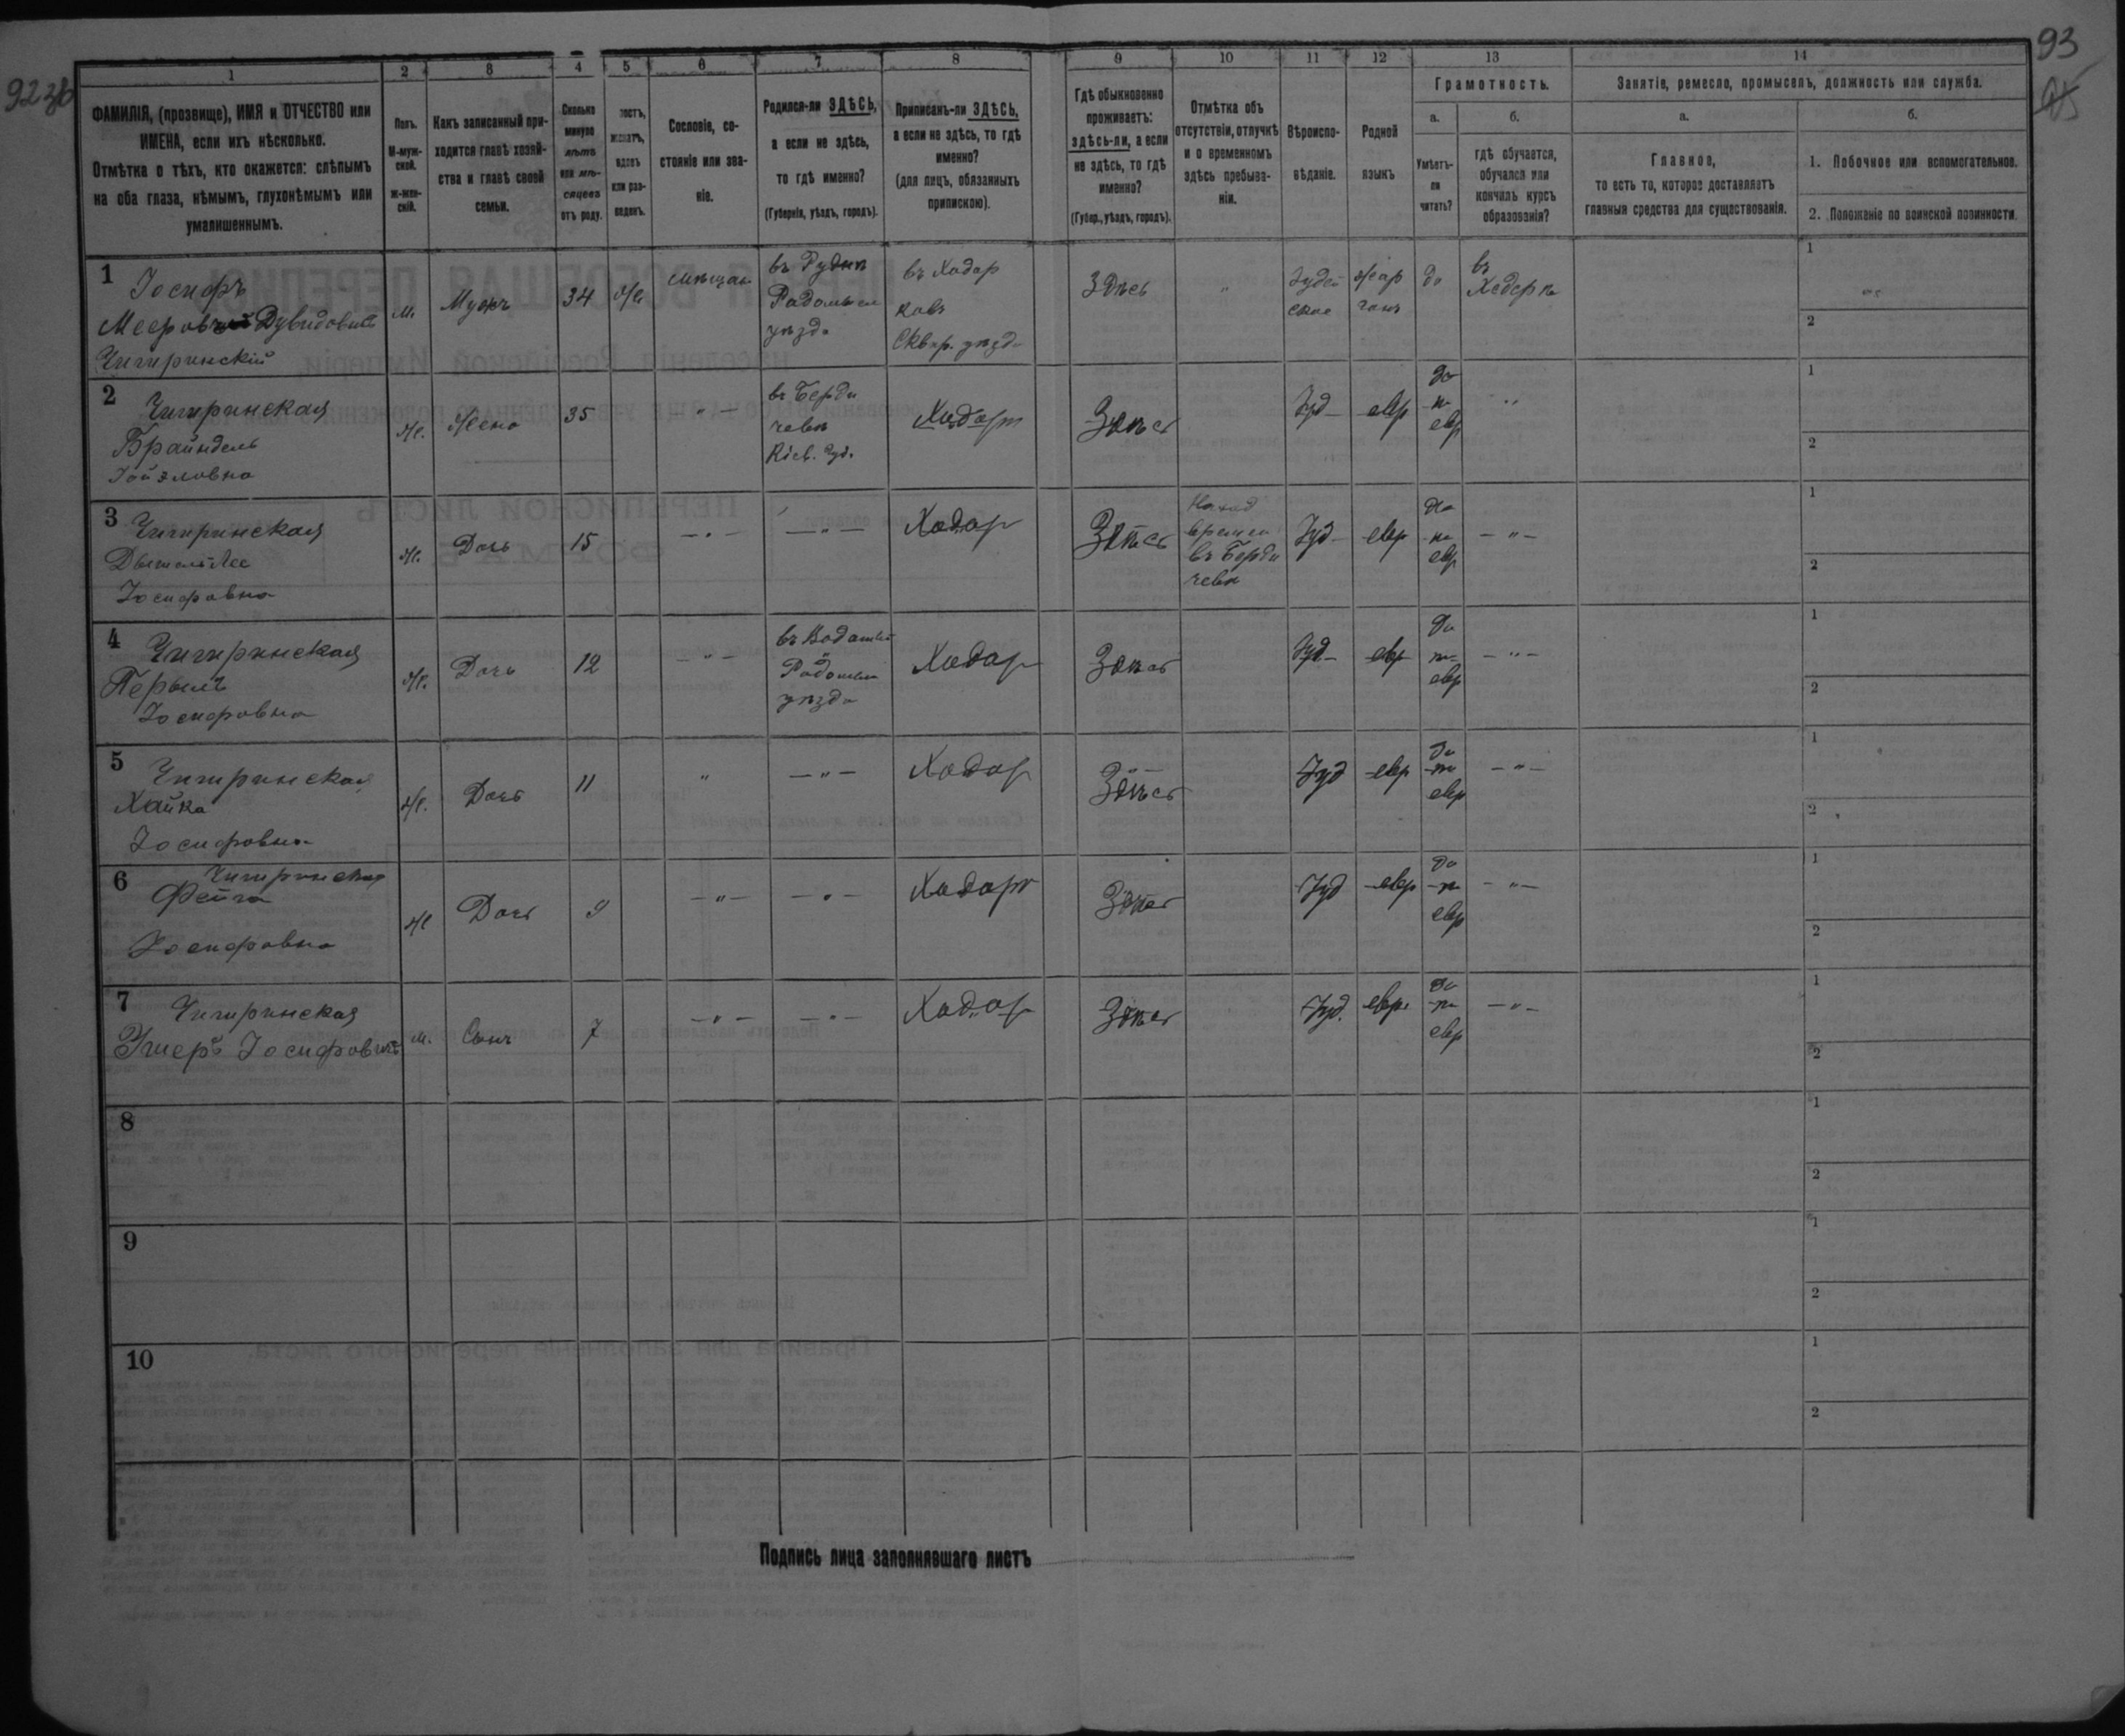 92 зв
93
95
1
2
3
4
5
6
7
8
9
10
11
12
13
14
ФАМИЛІЯ, (прозвище), ИМЯ и ОТЧЕСТВО или
ИМЕНА, если ихъ нѣсколько.
Отмѣтка о тѣхъ, кто окажется: слѣпымъ
на оба глаза, нѣмымъ, глухонѣмымъ или
умалишеннымъ.
Полъ.
М-муж-
ской.
ж-жен-
скій.
Какъ записанный при-
ходится главѣ хозяй-
ства и главѣ своей
семьи.
Сколько
минуло
лѣтъ
или мѣ-
сяцевъ
отъ роду.
лостъ,
женатъ,
вдовъ
или раз-
веденъ.
Сословіе, со-
стояніе или зва-
ніе.
Родился-ли ЗДѢСЬ,
а если не здѣсь,
то гдѣ именно?
(Губернія, уѣздъ, городъ).
Приписанъ-ли ЗДѢСЬ,
а если не здѣсь, то гдѣ
именно?
(для лицъ, обязанныхъ
припискою).
Гдѣ обыкновенно
проживаетъ:
здѣсь-ли, а если
не здѣсь, то гдѣ
именно?
(Губер., уѣздъ, городъ).
Отмѣтка объ
отсутствіи, отлучкѣ
и о временномъ
здѣсь пребыва-
ніи.
Вѣроиспо-
вѣданіе.
Родной
языкъ
Грамотность.
а.
Умѣетъ-
ли
читать?
б.
гдѣ обучается,
обучался или
кончилъ курсъ
образованія?
Занятіе, ремесло, промыселъ, должность или служба.
а.
Главное,
то есть то, которое доставляетъ
главныя средства для существованія.
б.
1. Побочное или вспомогательное.
2. Положеніе по воинской повинности.
1
Іосифъ
Мееровъ Дувидовичъ
Чигиринскій
м.
Мужъ
34
ж
мѣщан
въ Рудни
Радомысл
уѣзда
въ Ходор
ковѣ
Сквир. уѣзда
Здѣсь
"
Іудей
ское
жар
гонъ
да
въ
Хедерѣ
1
2
2
Чигиринская
Брайндель
Іойзловна
ж.
Жена
35
" —
въ Берди
чевѣ
Кіев. Губ.
Ходорк
Здѣсь
Іуд
евр
да
по
евр
"
1
2
3
Чигиринская
Іосифовна
ж.
Дочь
15
— " —
— " —
Ходор
Здѣсь
времен
въ Берди
чевѣ
Іуд
евр
да
по
евр
— " —
1
2
4
Чигиринская
Перыль
Іосифовна
ж.
Дочь
12
— " —
Радомысл
уѣзда
Ходор
Здѣсь
Іуд
евр
да
по
евр
— " —
1
2
5
Чигиринская
Хайка
Іосифовна
ж.
Дочь
11
"
— " —
Ходор
Здѣсь
Іуд
евр
да
по
евр
— " —
1
2
6
Чигиринская
Фейга
Іосифовна
ж
Дочь
9
— " —
— " —
Ходорк
Здѣсь
Іуд
евр
да
по
евр
— " —
1
2
7
Чигиринская
Ушеръ Іосифовичъ
м.
Сынъ
7
— " —
— " —
Ходор
Здѣсь
Іуд.
евр.
да
по
евр
— " —
1
2
8
1
2
9
1
2
10
1
2
Подпись лица заполнявшаго листъ